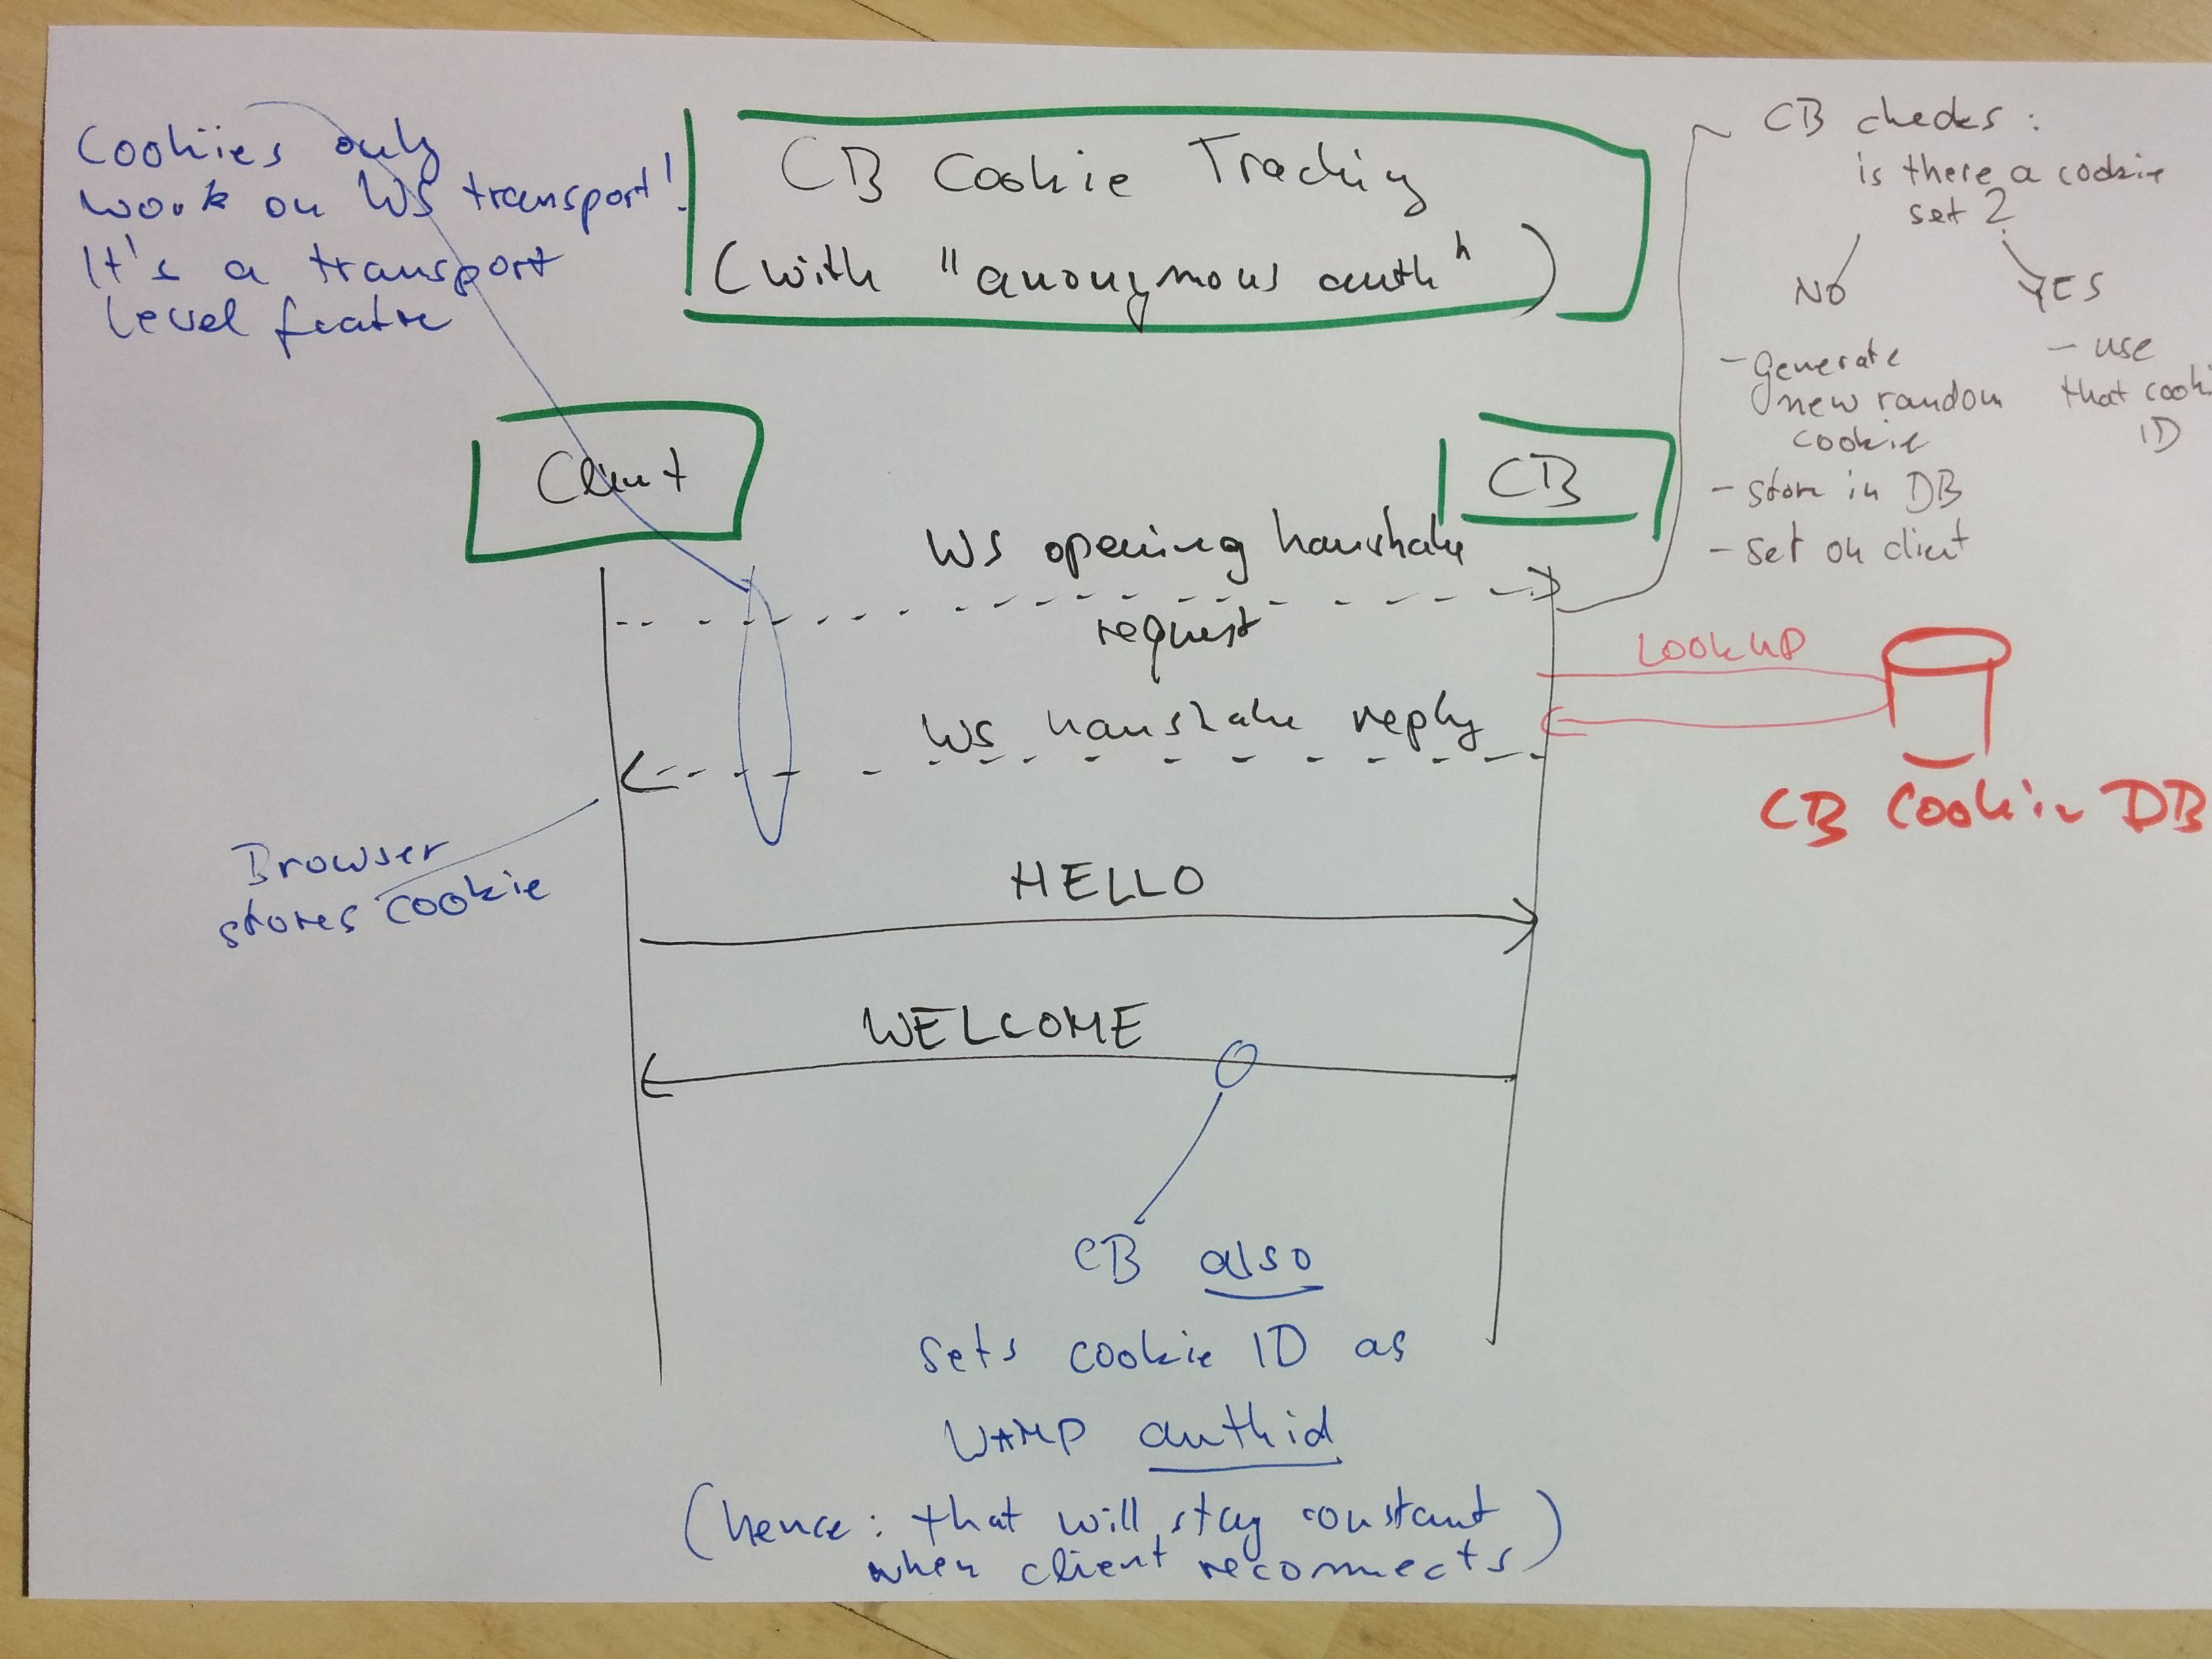 Cookies only
work on WS transport!
It's a transport
level featre
CB Cookie Tracking
(with "anonymous auth")
CB checks:
is there a cookie
set?
NO
YES
- generate
new random
cookie
- store in DB
- set on client
- use
that cooki
ID
Client
CB
WS opening handshake
request
LOOKUP
WS handshake reply
CB Cookie DB
Browser
stores cookie
HELLO
WELCOME
CB also
sets cookie ID as
WAMP authid
(hence: that will stay constant
when client reconnects)